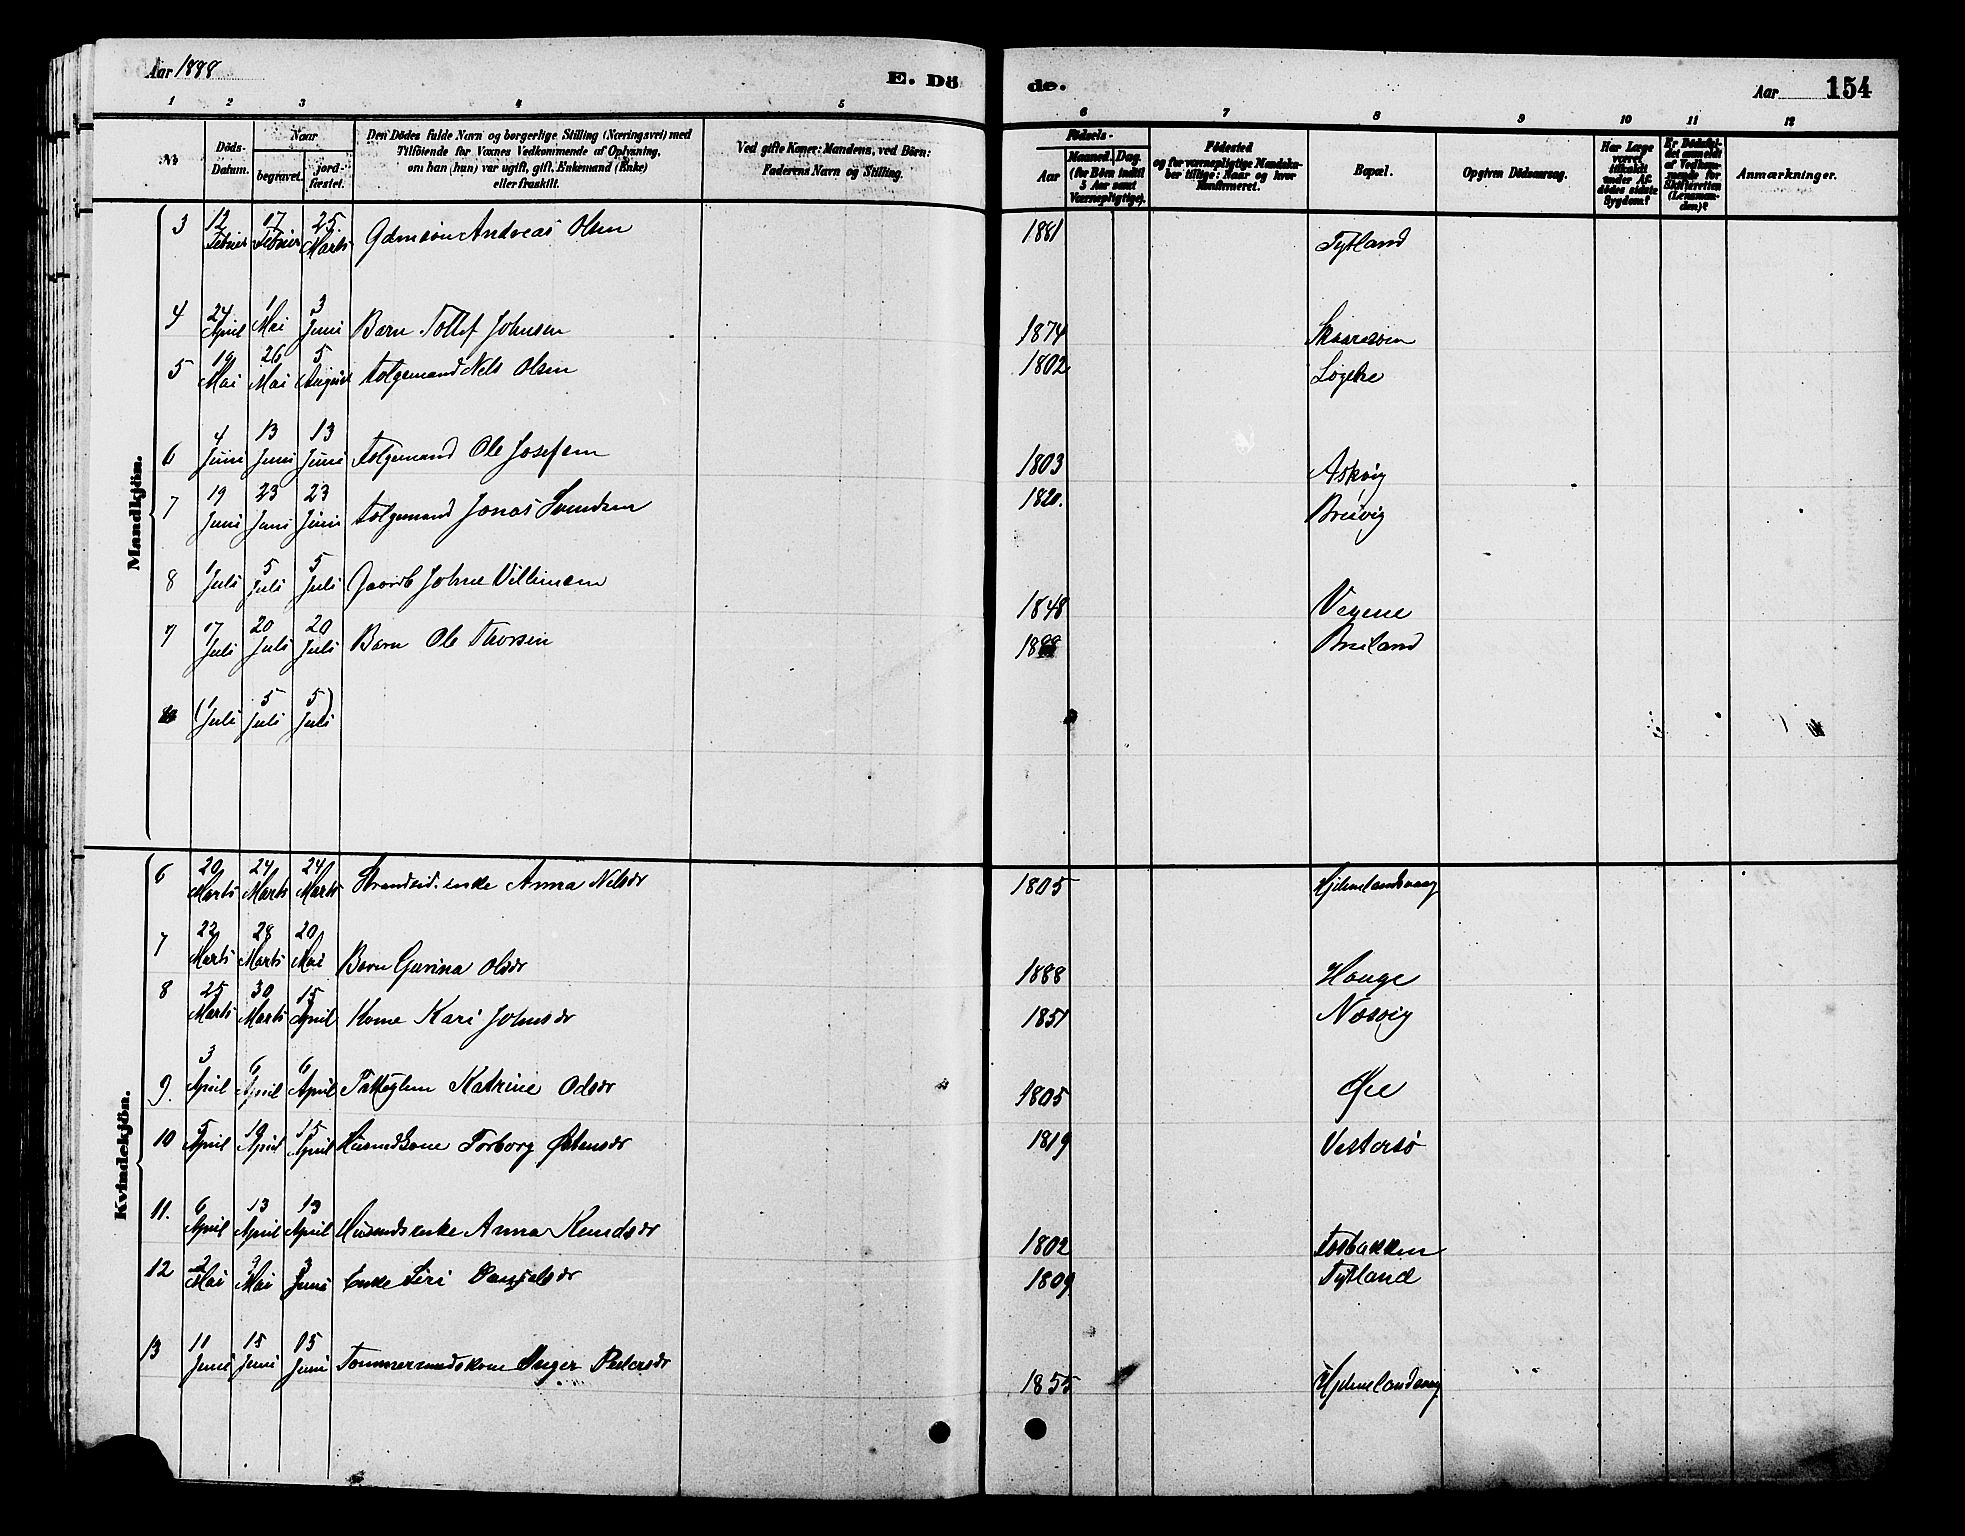 Aar 1888
E. Dö
de.
Aar
154
1 2 3 4 5 6 7 8 9 10 11 12
No
Döds-Datum.
Naar
begravet.
jord-fæstet.
Den Dödes fulde Navn og borgerlige Stilling (Næringsvei) med
Tilföiende for Voxnes Vedkommende af Oplysning,
om han (hun) var ugift, gift, Enkemand (Enke)
eller fraskilt.
Ved gifte Koner: Mandens, ved Börn:
Faderens Navn og Stilling.
Födsels-
Aar
Maaned. Dag.
(for Börn indtil
5 Aar samt
Værnepligtige).
Födested
og for værnepligtige Mandska-
ber tillige: Naar og hvor
konfirmeret.
Bopæl.
Opgiven Dödsaarsag.
Har Læge
været
tilkaldt
under Af-
dödes sidste
Sygdom?
Er Dödsfal-
det anmeldt
af Vedkom-
mende for
Skifteretten
(Lensman-
den)?
Anmærkninger.
Mandkjön.
3 12 Febuer 17 Febuer 25 Marts Andreas Olsen 1881 Tytland
4 24 April 1 Mai 3 Juni Barn Tollef Johnsen 1874
5 19 Mai 26 Mai 5 August Folgemand Nels Olsen 1802
6 4 Juni 13 Juni 13 Juni Folgemand Ole Josefsen 1803 Askvig
7 19 Juni 23 Juni 23 Juni Folgemand Jonas Svendsen 1820. Breivig
8 1 Juli 5 Juli 5 Juli Johne Villimsen 1848 Vegene
9 17 Juli 20 Juli 20 Juli Barn Ole Thorsen 1888 Breiland
10 (1 Juli 5 Juli 5 Juli)
Kvindekjön.
6 20 Marts 24 Marts 24 Marts Strandsid. enke Anna Nelsdr 1805 Hjelmelandsvaag
7 22 Marts 28 Marts 20 Mai Barn Gurina Olsdr 1888 Hauge
8 25 Marts 30 Marts 15 April Kone Kari Johnsdr 1851 Nesvig
9. 3 April 6 April 6 April Katrine Odsdr 1805 Øie
10 5 April 10 April 15 April Husmdkone Torborg Østensdr 1819 Vestersø
11. 6 April 13 April 13 April Husmdsenke Anna Knudsdr 1802 Fosbakken
12 2 Mai 3 Mai 3 Juni Enke Siri Danielsdr 1809 Tytland
13 11 Juni 15 Juni 15 Juni Tommermndskone Inger Pedersdr 1855 Hjelmelandsvaag